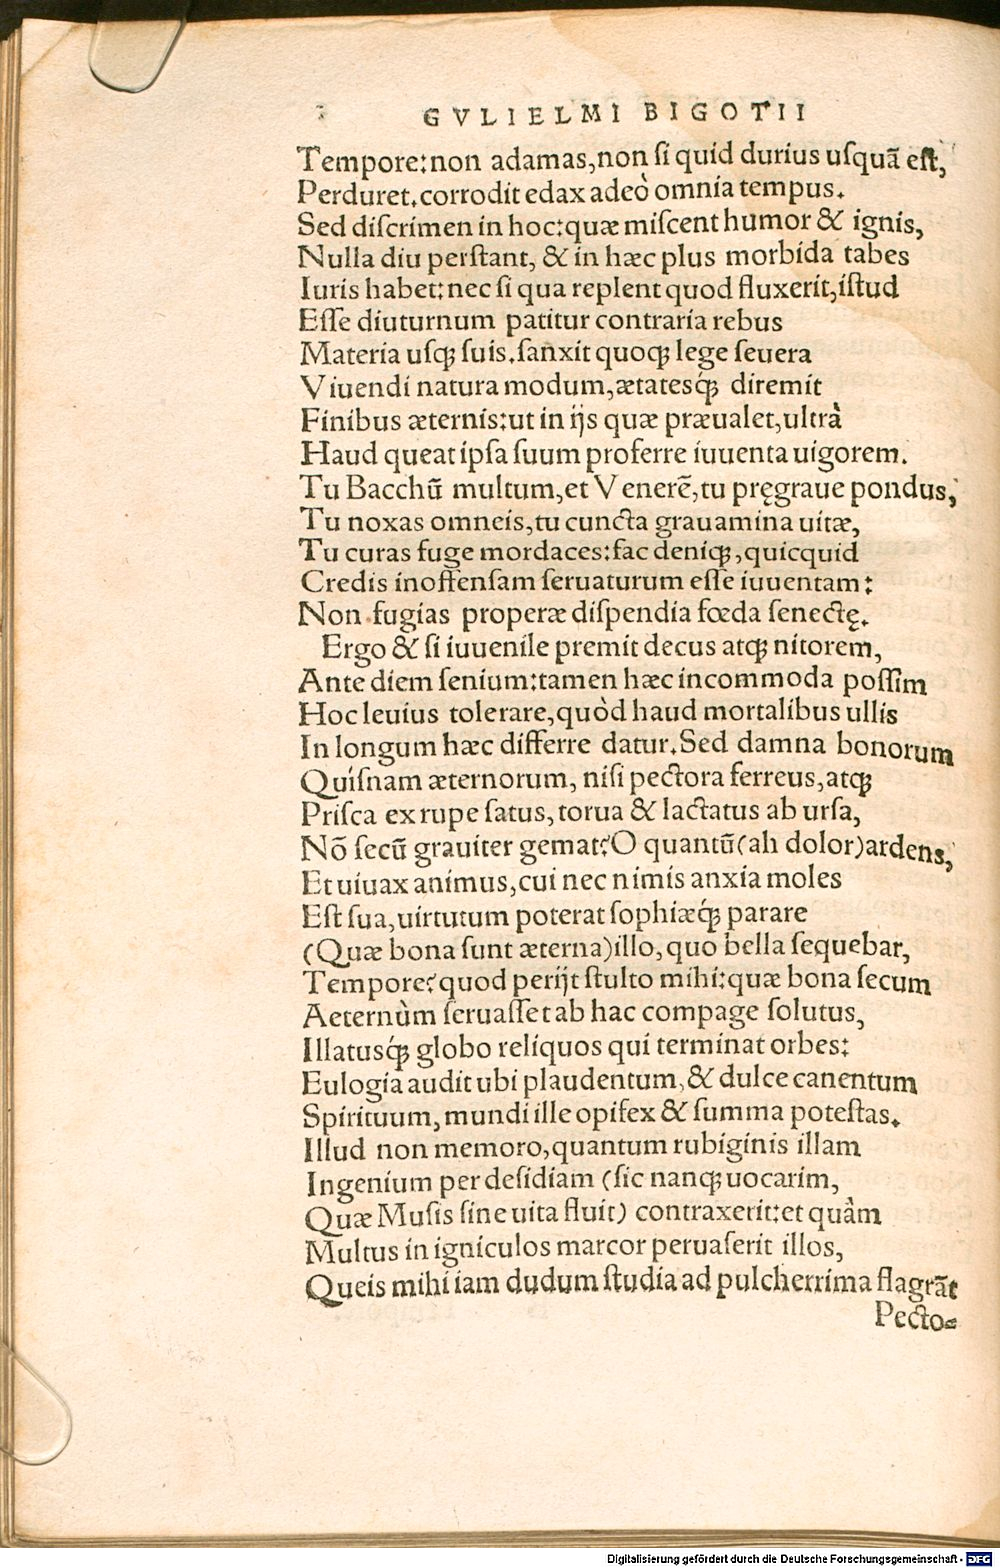 GVLIELMI BIGOTII
Tempore:non adamas,non ſi quid durius uſquā eſt,
Perduret.corrodit edax adeò omnia tempus.
Sed diſcrimen in hoc:quæ miſcent humor & ignis,
Nulla diu perſtant, & in hæc plus morbida tabes
Iuris habet:nec ſi qua replent quod fluxerit,iſtud
Eſſe diuturnum patitur contraria rebus
Materia uſqꝫ ſuis.ſanxit quoqꝫ lege ſeuera
Viuendi natura modum,ætatesq́ꝫ diremit
Finibus æternis:ut in ijs quæ præualet,ultrà
Haud queat ipſa ſuum proferre iuuenta uigorem.
Tu Bacchū multum,et Venerē,tu pręgraue pondus,
Tu noxas omneis,tu cuncta grauamina uitæ,
Tu curas fuge mordaces:fac deniqꝫ,quicquid
Credis inoffenſam ſeruaturum eſſe iuuentam:
Non fugias properæ diſpendia fœda ſenectę.
Ergo & ſi iuuenile premit decus atqꝫ nitorem,
Ante diem ſenium:tamen hæc incommoda poſſim
Hoc leuius tolerare,quòd haud mortalibus ullis
In longum hæc differre datur.Sed damna bonorum
Quiſnam æternorum, niſi pectora ferreus,atqꝫ
Priſca ex rupe ſatus, torua & lactatus ab urſa,
Nō ſecū grauiter gemat?O quantū(ah dolor)ardens,
Et uiuax animus,cui nec nimis anxia moles
Eſt ſua,uirtutum poterat ſophiæq́ꝫ parare
(Quæ bona ſunt æterna)illo,quo bella ſequebar,
Tempore?quod perijt ſtulto mihi:quæ bona ſecum
Aeternùm ſeruaſſet ab hac compage ſolutus,
Illatusq́ꝫ globo reliquos qui terminat orbes:
Eulogia audit ubi plaudentum,& dulce canentum
Spirituum, mundi ille opifex & ſumma poteſtas.
Illud non memoro,quantum rubiginis illam
Ingenium per deſidiam (ſic nanqꝫ uocarim,
Quæ Muſis ſine uita fluit) contraxerit:et quàm
Multus in igniculos marcor peruaſerit illos,
Queis mihi iam dudum ſtudia ad pulcherrima flagrāt
Pecto-
Digitalisierung gefördert durch die Deutsche Forschungsgemeinschaft - DFG